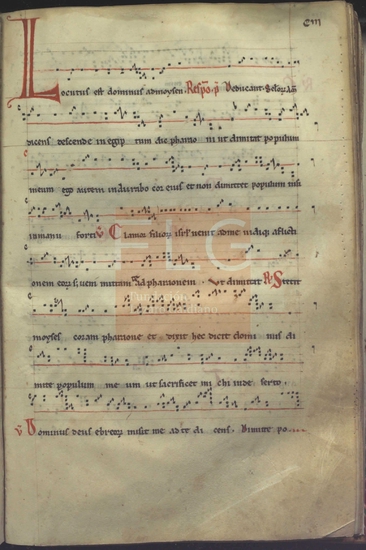 CIII
Locutus est dominus admoysen. Respo. p. Deducant. Seloram
dicens descende in egip tum dic pharao ni ut dimitat populum
meum ego autem indurabo cor eius et non dimittet populum nisi
inmanu forti V Clamor filiorum isrl' venit adme uidiqi afflicti
onem eorum s; veni mittam te ad pharaonem. Ut dimitat R Stetit
moyses coram pharaone et dixit hec dicit domi nus di
mitte populum me um ut sacrificet mi chi inde serto.
V Dominus deus ebreorum misit me ad te di cens. Dimitte po
FLG